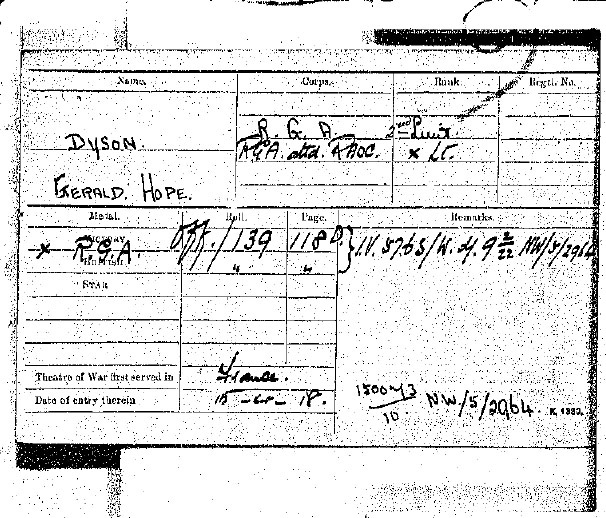 Name. Corps. Rank. Regtl. No.
DYSON. R. G. A. 2nd Lieut
R.G.A. attd. RAOC. × Lt.
GERALD. HOPE.
Medal. Roll. Page. Remarks.
Victory
× R.G.A. Off./139 118 D. } I.V. 5765/W. d. 9 2/22 NW/5/2964
British " "
STAR
Theatre of War first served in France.
Date of entry therein 15 - - 18.
NW/5/2964. K. 1380.
10